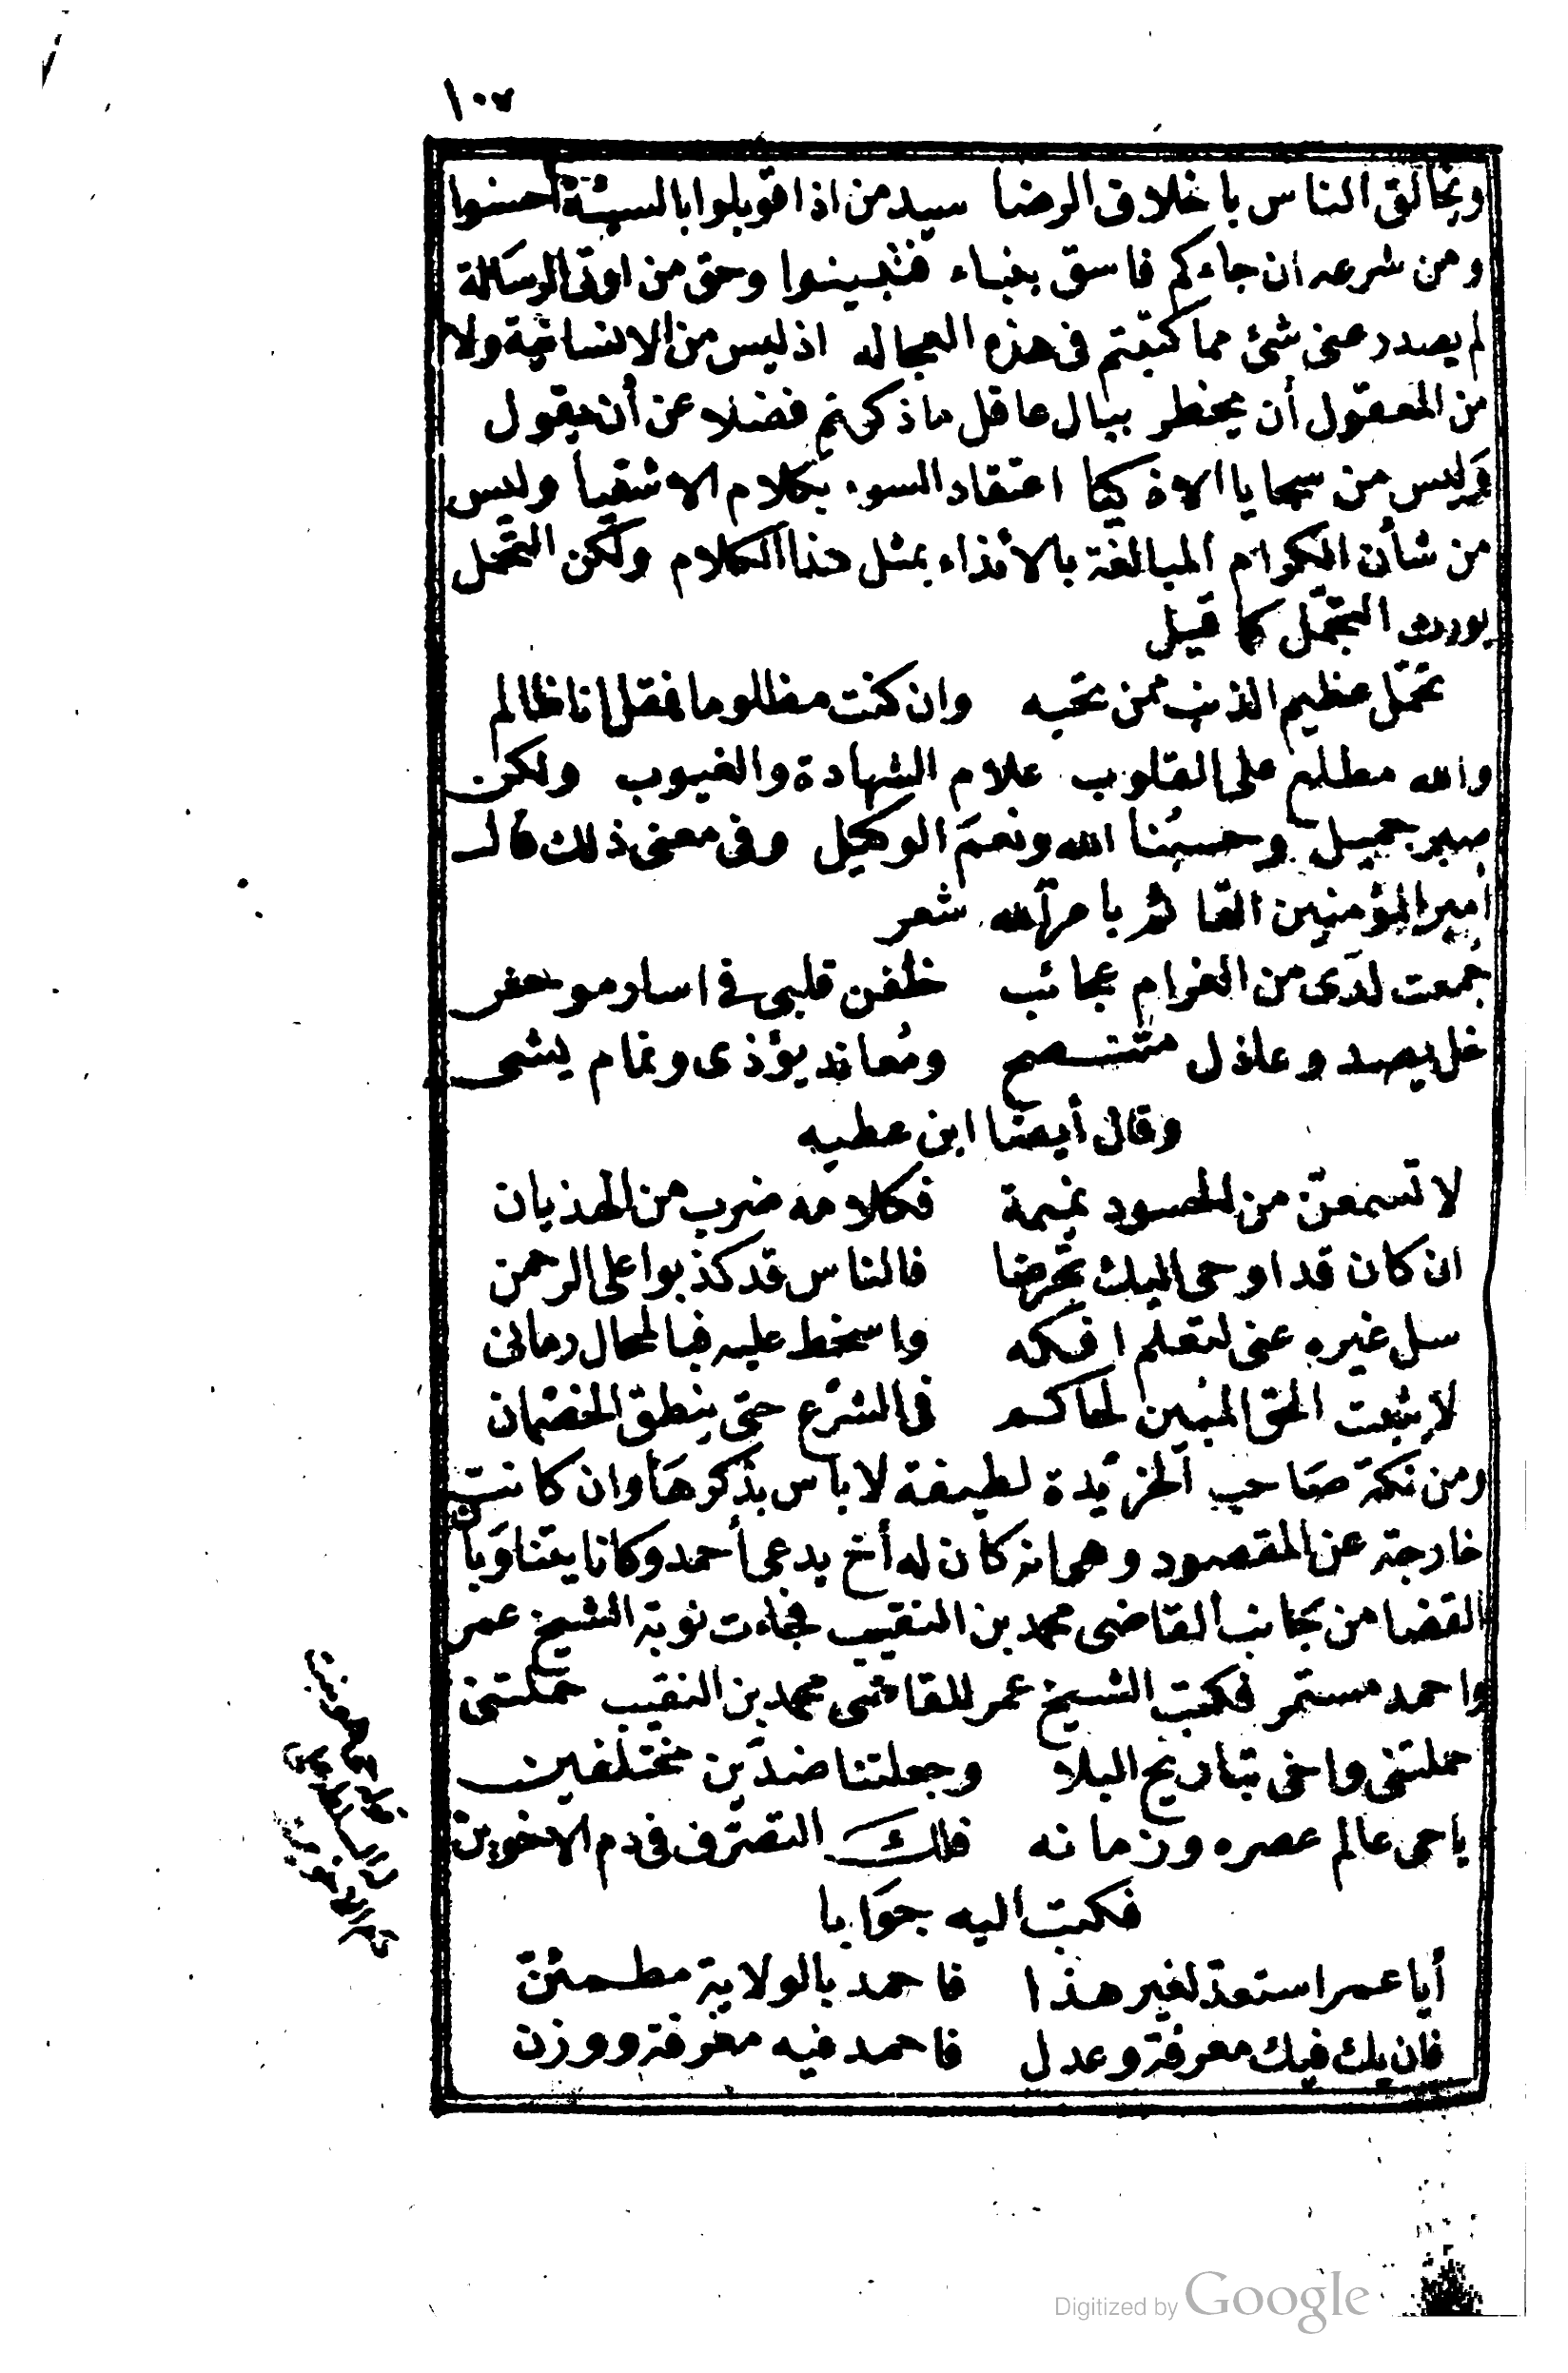 ١٠٧
ويخالق الناس باخلاق الرضا سيد من اذا قوبلوا بالسيئة احسنوا
ومن شرعه ان جاءكم فاسق بنباء فتبينوا وحق من اوتى الرسالة
لم يصدر عنى شئ مما كتبتم فى هذه العجاله اذ ليس من الانسانية ولا
من المعقول أن يخطر ببال عاقل ما ذكرتم فضلا عن أن يقول
وليس من سجايا الاذكيا اعتقاد السوء بكلام الاشقيا وليس
من شأن الكرام المبالغة بالأذاء بمثل هذا الكلام ولكن التحمل
يورث التجمل كما قيل
تحمّل عظيم الذنب ممن تحبه وان كنت مظلوما فقل انا ظالم
والله مطلع على القلوب علام الشهادة والغيوب ولكن
صبر جميل وحسبُنا الله ونعمَ الوكيل وفى معنى ذلك قال
أمير المؤمنين القائم بامر الله شعر
جُمعت لدَى من الغرام عجائب خلفن قلبى فى اسار موحش
خل يصد وعاذل متنصح ومُعاند يؤذى ونمام يشى
وقال أيضا ابن عطيه
لا تسمعنّ من الحسود نميمة فكلامه ضرب من الهذيان
ان كان قد اوحى اليك تخرضا فالناس قد كذبوا على الرحمن
سل غيره عنى لتعلم افكه واسخط عليه فبالمحال رمانى
لا يثبت الحق المبين لحاكم فى الشرع حتى ينطق الخصمان
ومن نكتة صاحب الخريدة لطيفة لا باس بذكرها وان كانت
خارجة عن المقصود وهى انه كان له أخ يدعى أحمد وكانا يتناوبان
القضا من جانب القاضى محمد بن النقيب فجاءت نوبة الشيخ عمر
واحمد مستمر فكتب الشيخ عمر للقاضى محمد بن النقيب حملتنى
حملتنى واخى تباريح البلا وجعلتنا ضدّين مختلفين
ياحى عالم عصره وزمانه فلك التصرّف فى دم الاخوين
فكتب اليه جوابا
أيا عمر استعدّ لغير هذا فاحمد بالولاية مطمئنّ
فان يك فيك معرفة وعدل فاحمد فيه معرفة ووزن
Digitized by Google